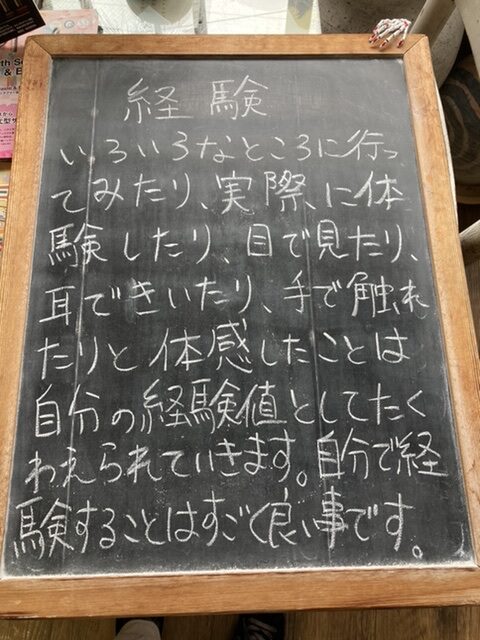 経験
いろいろなところに行っ
てみたり、実際に体
験したり、目で見たり、
耳できいたり、手で触れ
たりと体感したことは
自分の経験値としてたく
わえられていきます。自分で経
験することはすごく良い事です。